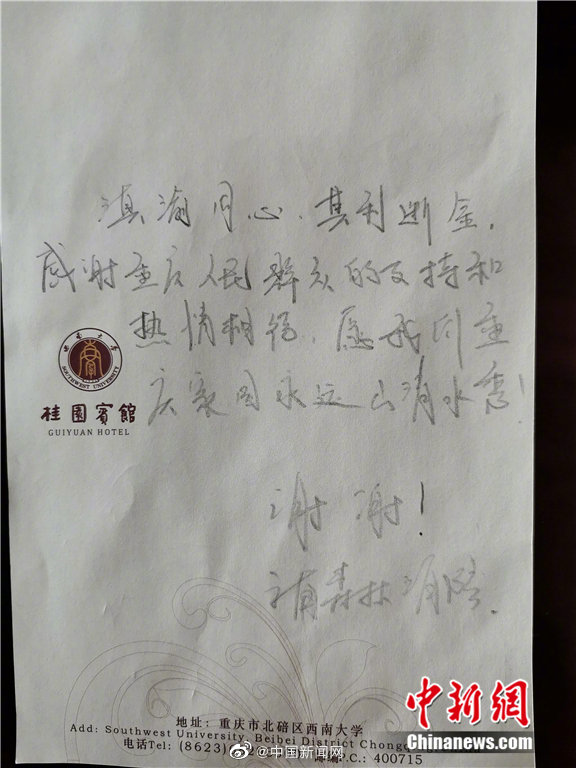 滇渝同心，其利断金。
感谢重庆人民群众的支持和
热情相待，愿我们重
庆家园永远山清水秀！
谢谢！
森林消防
西南大学
SOUTHWEST UNIVERSITY
桂園賓館
GUIYUAN HOTEL
地址：重庆市北碚区西南大学
Add: Southwest University, Beibei District Chong
电话Tel: (8623)
@中国新闻网
P.C.: 400715
中新网
Chinanews.com